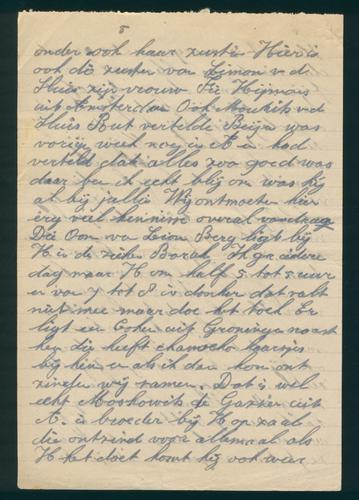 5
onder ook haar zustie Hier is
ook de zuster van Simon v d
Sluis zijn vrouw Fie Hijmans
uit Amsterdam Ook Maukits v d
Sluis But vertelde Beijn was
vorige week nog in A en had
verteld dat alles zoo goed was
daar ben ik echt blij om was hij
al bij jullie Wij ontmoeten hier
erg veel kennisse overal vandaag
Die Oom van Leon Berg ligt bij
H in de zieke Barak Ik ga iedere
dag naar H om half 5 tot 5 uur
en van 7 tot 8 in donker dat valt
niet mee maar doe het toch Er
ligt een Cohen uit Groningen naast
hem die heeft chanoeko kaarsjes
bij hem en als ik dan kom ont
zinefen wij samen. Dat is wel
echt Moskowits de Gazzen uit
A. is broeder bij H op zaal
die ontzind voor allemaal als
H het doet komt hij ook weer